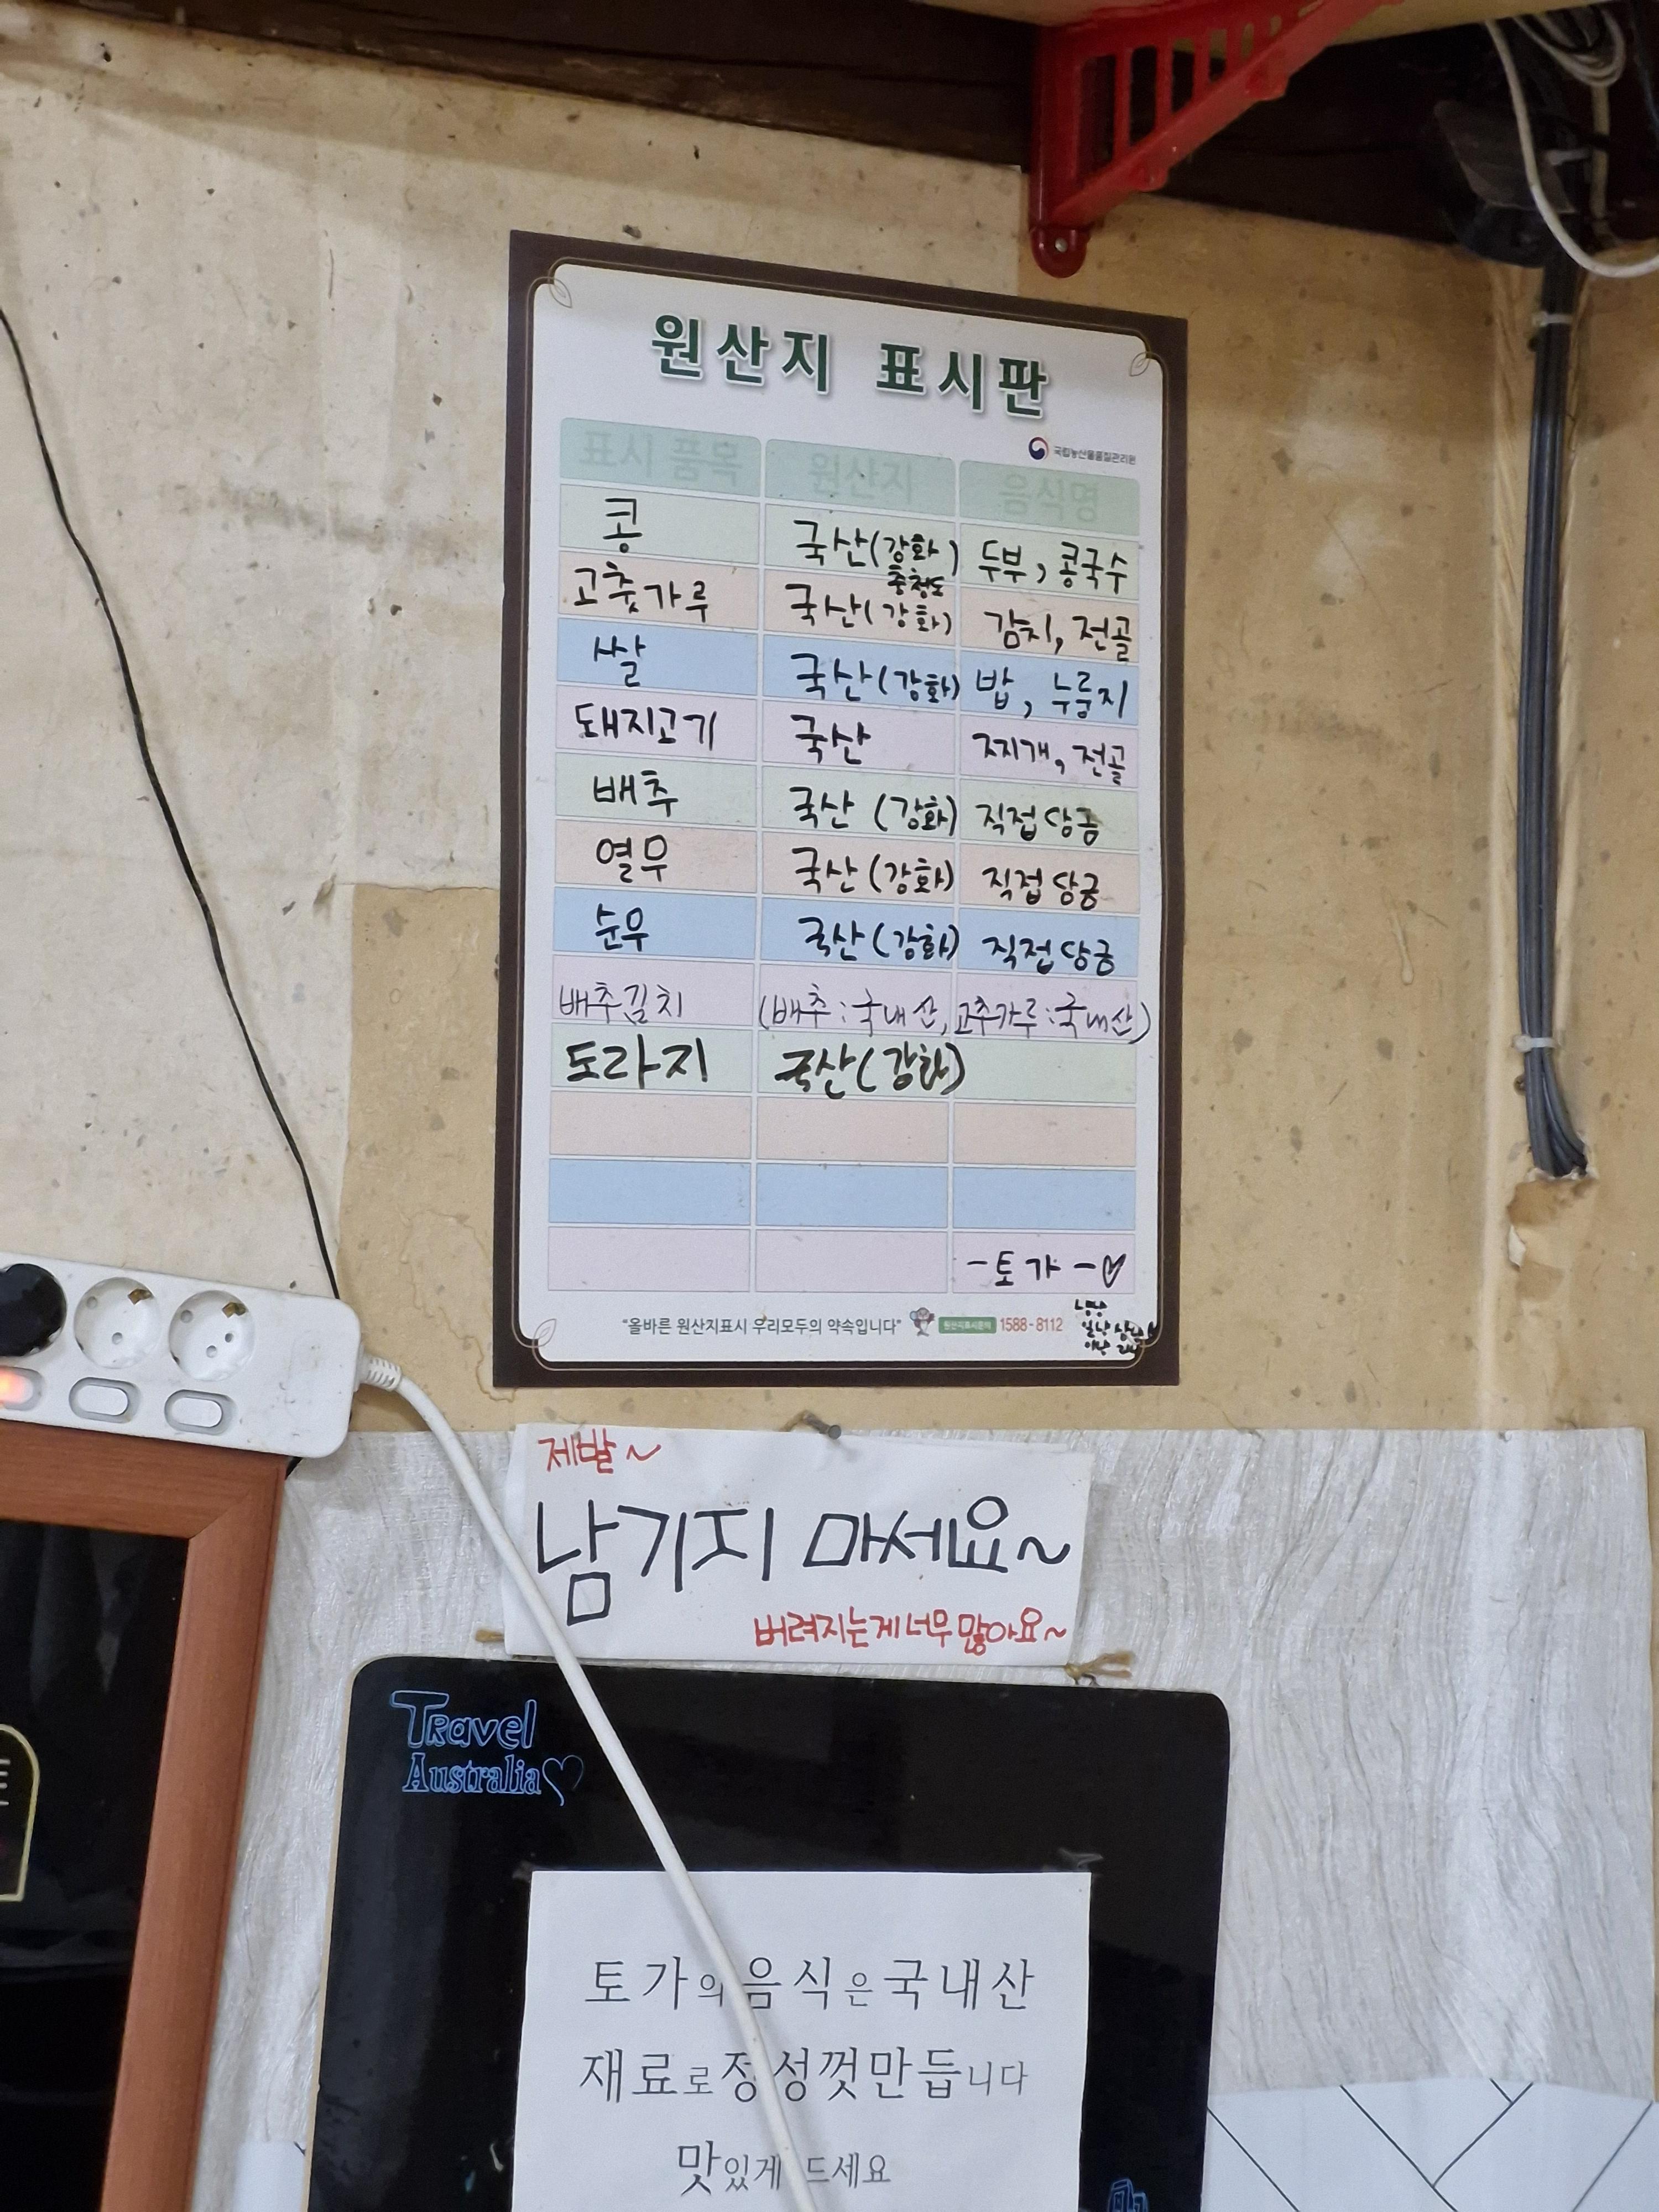 원산지 표시판
국립농산물품질관리원
표시 품목 원산지 음식명
콩 국산(강화) 두부, 콩국수
고춧가루 국산(강화) 충청도 김치, 전골
쌀 국산(강화) 밥, 누룽지
돼지고기 국산 찌개, 전골
배추 국산 (강화) 직접담금
열무 국산 (강화) 직접담금
순무 국산 (강화) 직접담금
배추김치 (배추:국내산, 고추가루:국내산)
도라지 국산(강화)
-토가-♡
"올바른 원산지표시 우리모두의 약속입니다" 원산지표시문의 1588-8112
제발~
남기지 마세요~
버려지는게너무많아요~
Travel
Australia♡
토가의음식은국내산
재료로정성껏만듭니다
맛있게 드세요